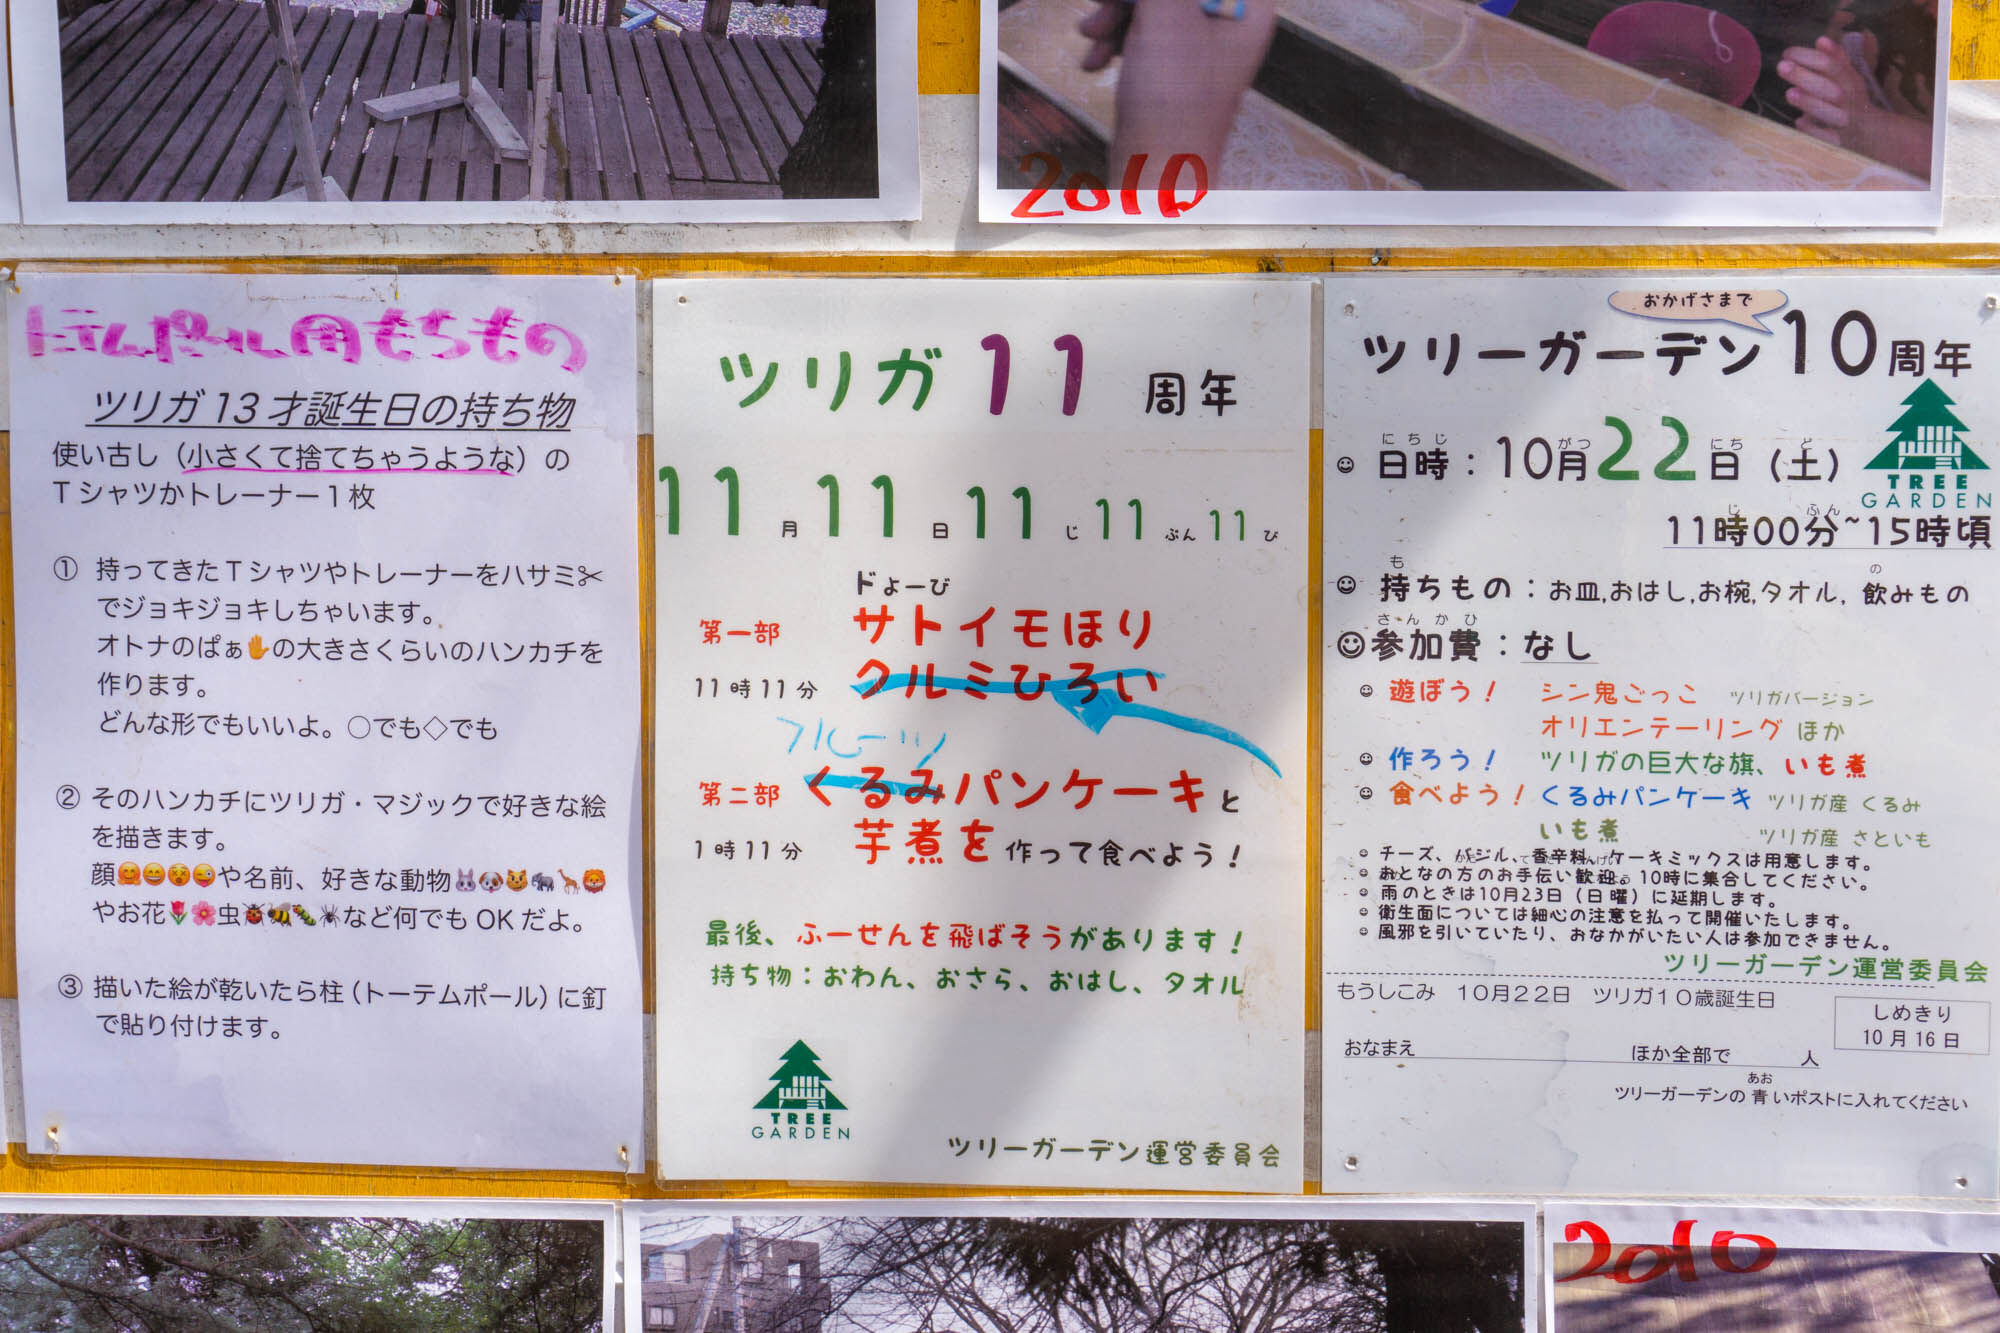 2010
トーテムポール用もちもの
ツリガ13才誕生日の持ち物
使い古し（小さくて捨てちゃうような）の
Tシャツかトレーナー1枚
① 持ってきたTシャツやトレーナーをハサミ✂
でジョキジョキしちゃいます。
オトナのぱぁ✋の大きさくらいのハンカチを
作ります。
どんな形でもいいよ。○でも◇でも
② そのハンカチにツリガ・マジックで好きな絵
を描きます。
顔🤗😄😵😜や名前、好きな動物🐰🐶😼🐘🦒🦁
やお花🌷🌸虫🐞🐝🐛🕷など何でもOKだよ。
③ 描いた絵が乾いたら柱（トーテムポール）に釘
で貼り付けます。
ツリガ11周年
11月11日11じ11ぷん11び
ドよーび
第一部 サトイモほり
11時11分 クルミひろい
フルーツ
第二部 くるみパンケーキと
1時11分 芋煮を作って食べよう！
最後、ふーせんを飛ばそうがあります！
持ち物：おわん、おさら、おはし、タオル
TREE
GARDEN
ツリーガーデン運営委員会
おかげさまで
ツリーガーデン10周年
にちじ がつ にち ど
☺ 日時：10月22日（土）
TREE
GARDEN
じ ふん
11時00分~15時頃
も の
☺ 持ちもの：お皿,おはし,お椀,タオル, 飲みもの
さんかひ
☺参加費：なし
☺ 遊ぼう！ シン鬼ごっこ ツリガバージョン
オリエンテーリング ほか
☺ 作ろう！ ツリガの巨大な旗、いも煮
☺ 食べよう！くるみパンケーキ ツリガ産 くるみ
いも煮 ツリガ産 さといも
☺ チーズ、バジル、香辛料、ケーキミックスは用意します。
☺ おとなの方のお手伝い歓迎。10時に集合してください。
☺ 雨のときは10月23日（日曜）に延期します。
☺ 衛生面については細心の注意を払って開催いたします。
☺ 風邪を引いていたり、おなかがいたい人は参加できません。
ツリーガーデン運営委員会
もうしこみ 10月22日 ツリガ10歳誕生日
しめきり
10月16日
おなまえ ほか全部で 人
あお
ツリーガーデンの青いポストに入れてください
2010